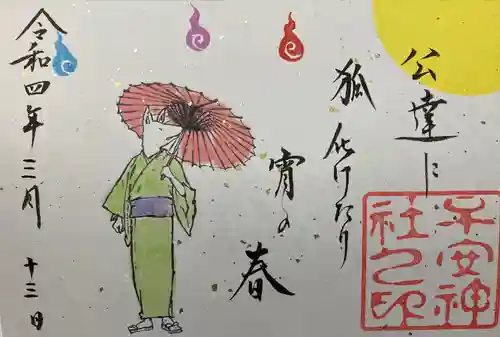 公達に
狐化けたり
宵の
春
子安神
社之印
令和四年三月
十三日